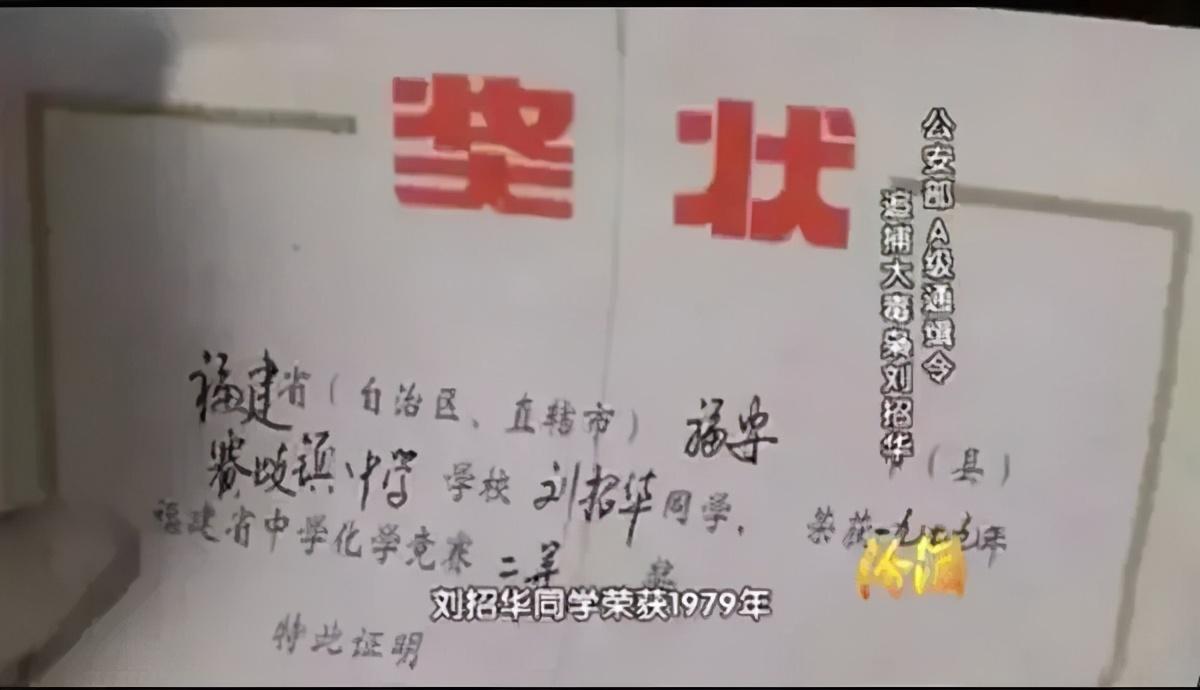 奖状
公安部A级通缉令
追捕大毒枭刘招华
福建省(自治区、直辖市) 福安市(县)
赛岐镇中学 学校 刘招华 同学, 荣获一九七九年
福建省中学化学竞赛 二等 奖
刘招华同学荣获1979年
特此证明